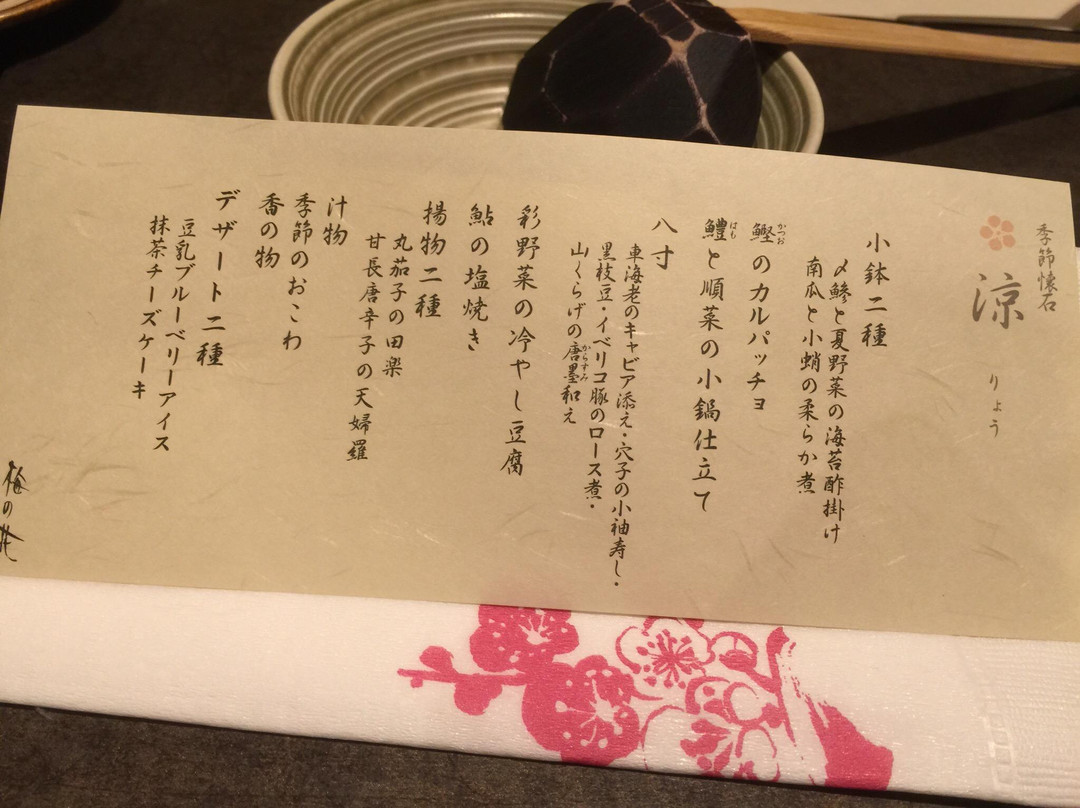 季節懐石
涼
りょう
小鉢二種
〆鯵と夏野菜の海苔酢掛け
南瓜と小蛸の柔らか煮
かつお
鰹のカルパッチョ
はも
鱧と順菜の小鍋仕立て
八寸
車海老のキャビア添え・穴子の小袖寿し・
黒枝豆・イベリコ豚のロース煮・
からすみ
山くらげの唐墨和え
彩野菜の冷やし豆腐
鮎の塩焼き
揚物二種
丸茄子の田楽
甘長唐辛子の天婦羅
汁物
季節のおこわ
香の物
デザート二種
豆乳ブルーベリーアイス
抹茶チーズケーキ
梅の花